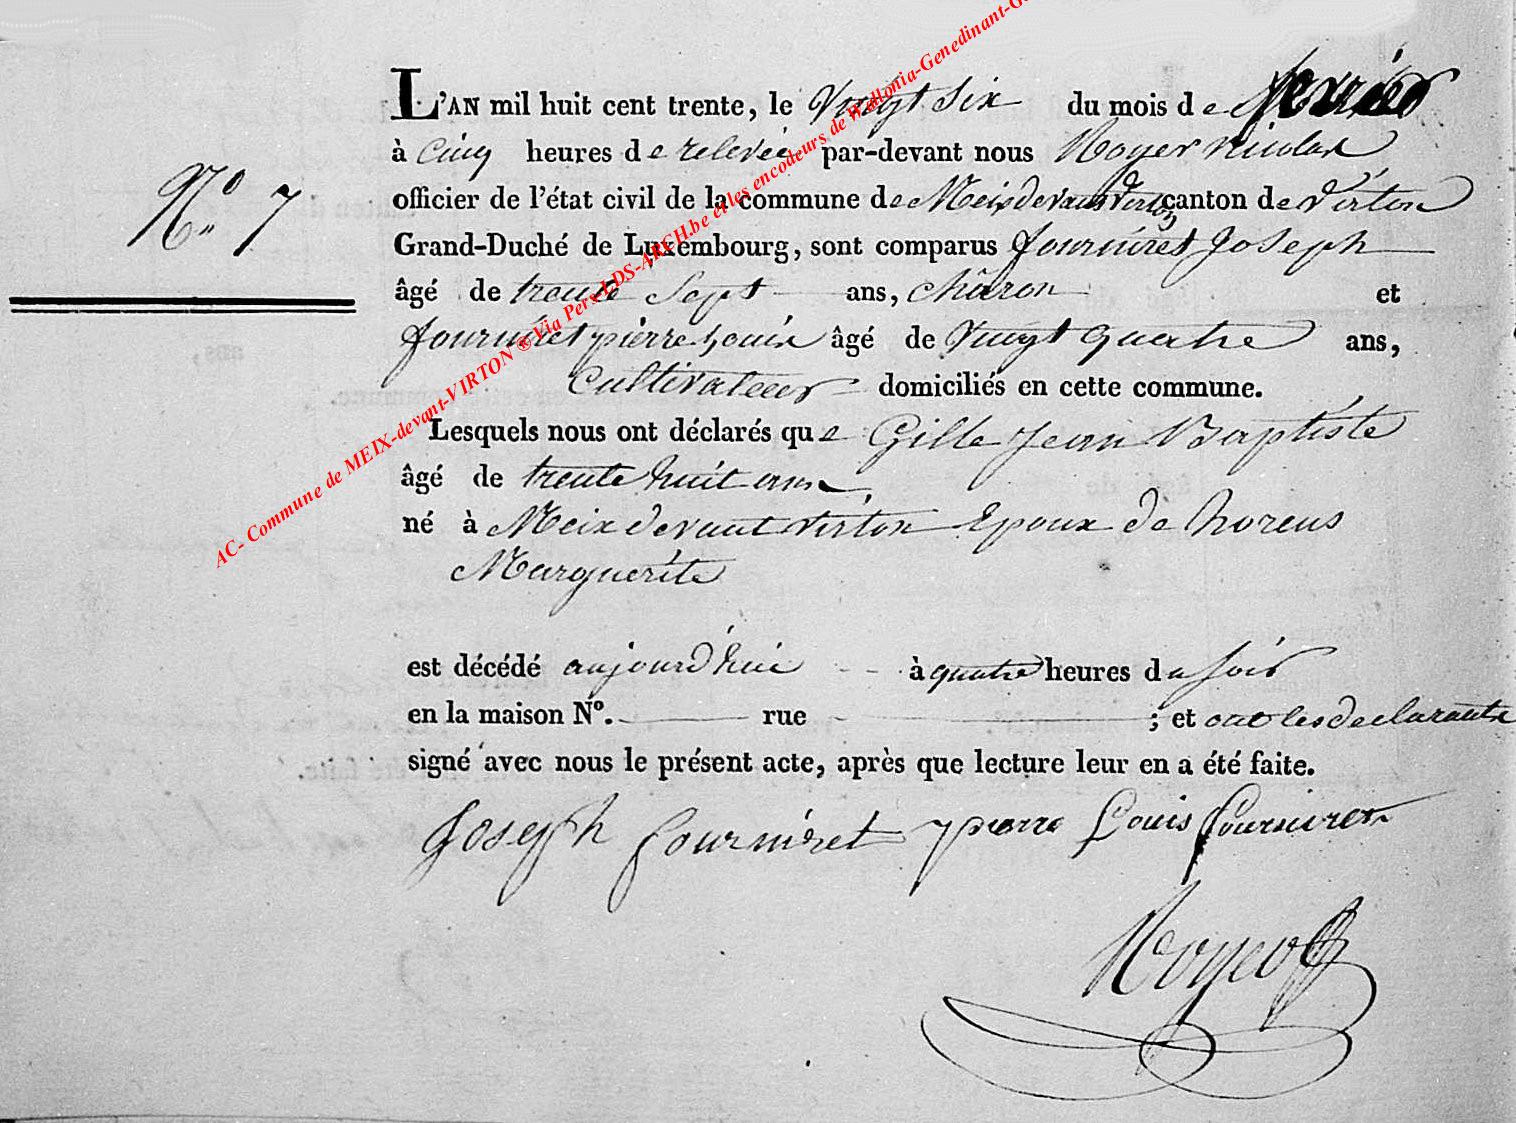 L'AN mil huit cent trente, le Vingt Six du mois de fevrier
N° 7
à Cinq heures de relevée par-devant nous Noyer Nicolas
officier de l'état civil de la commune de Meix devant Virton canton de Virton
Grand-Duché de Luxembourg, sont comparus fourniret Joseph
âgé de trente Sept ans, charon et
fourniret pierre Louis âgé de Vingt quatre ans,
Cultivateur domiciliés en cette commune.
Lesquels nous ont déclarés que Gille Jean Baptiste
âgé de trente huit ans
né à Meix devant Virton Epoux de
Marguerite
est décédé aujourd'hui à quatre heures du soir
en la maison N°. rue ; et ont les declarants
signé avec nous le présent acte, après que lecture leur en a été faite.
Joseph fourniret pierre Louis fourniret
Noyer
AC- Commune de MEIX-devant-VIRTON ® Via Pers LDS-ARCH.be et les encodeurs de Wallonia-Genedinant-G